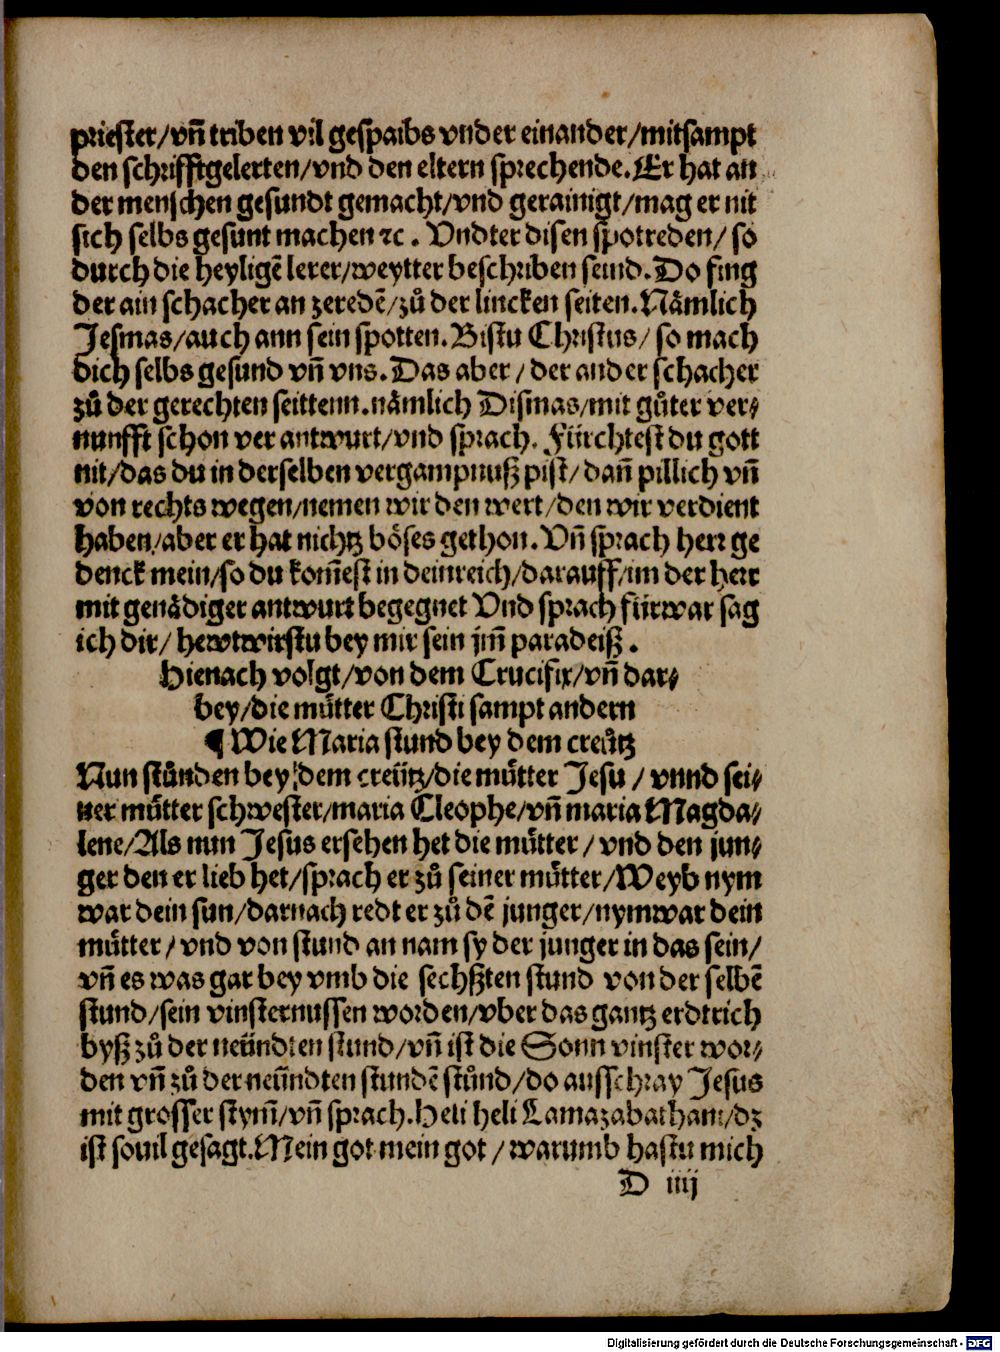 priester/vñ triben vil gespaibs vnder einander/mitsampt
den schrifftgelerten/vnd den eltern sprechende. Er hat an
der menschen gesundt gemacht/vnd gerainigt/mag er nit
sich selbs gesunt machen ⁊c . Vndter disen spotreden/ so
durch die heyligē lerer/weytter beschriben seind. Do fing
der ain schacher an zeredē/zů der lincken seiten. Nämlich
Jesmas/auch ann sein spotten. Bistu Christus/ so mach
dich selbs gesund vñ vns. Das aber/ der ander schacher
zů der gerechten seittenn. nämlich Dismas/mit gůter ver⸗
nunfft schon verantwurt/vnd sprach. Fürchtest du gott
nit/das du in derselben vergampnuß pist/ dañ pillich vñ
von rechts wegen/nemen wir den wert/den wir verdient
haben/aber er hat nichtz böses gethon. Vñ sprach herr ge
denck mein/so du kom̄est in dein reich/darauff/im der herr
mit genädiger antwurt begegnet Vnd sprach fürwar sag
ich dir/ hewtwirstu bey mir sein jm̄ paradeiß .
Hienach volgt/von dem Crucifix/vñ dar⸗
bey/die můtter Christi sampt andern
¶ Wie Maria stund bey dem creütz
Nun stůnden bey dem creütz/die můtter Jesu / vnnd sei⸗
ner můtter schwester/maria Cleophe/vñ maria Magda⸗
lene/Als nun Jesus ersehen het die můtter / vnd den jun⸗
ger den er lieb het/sprach er zů seiner můtter/Weyb nym
war dein sun/darnach redt er zů dē junger/nymwar dein
můtter / vnd von stund an nam sy der junger in das sein/
vñ es was gar bey vmb die sechßten stund von der selbē
stund/sein vinsternussen worden/vber das gantz erdtrich
byß zů der neündten stund/vñ ist die Sonn vinster wor⸗
den vñ zů der neündten stundē stůnd/do ausschray Jesus
mit grosser stym̄/vñ sprach. Heli heli Lamazabathani/dz
ist souil gesagt. Mein got mein got / warumb hastu mich
D iiij
Digitalisierung gefördert durch die Deutsche Forschungsgemeinschaft - DFG